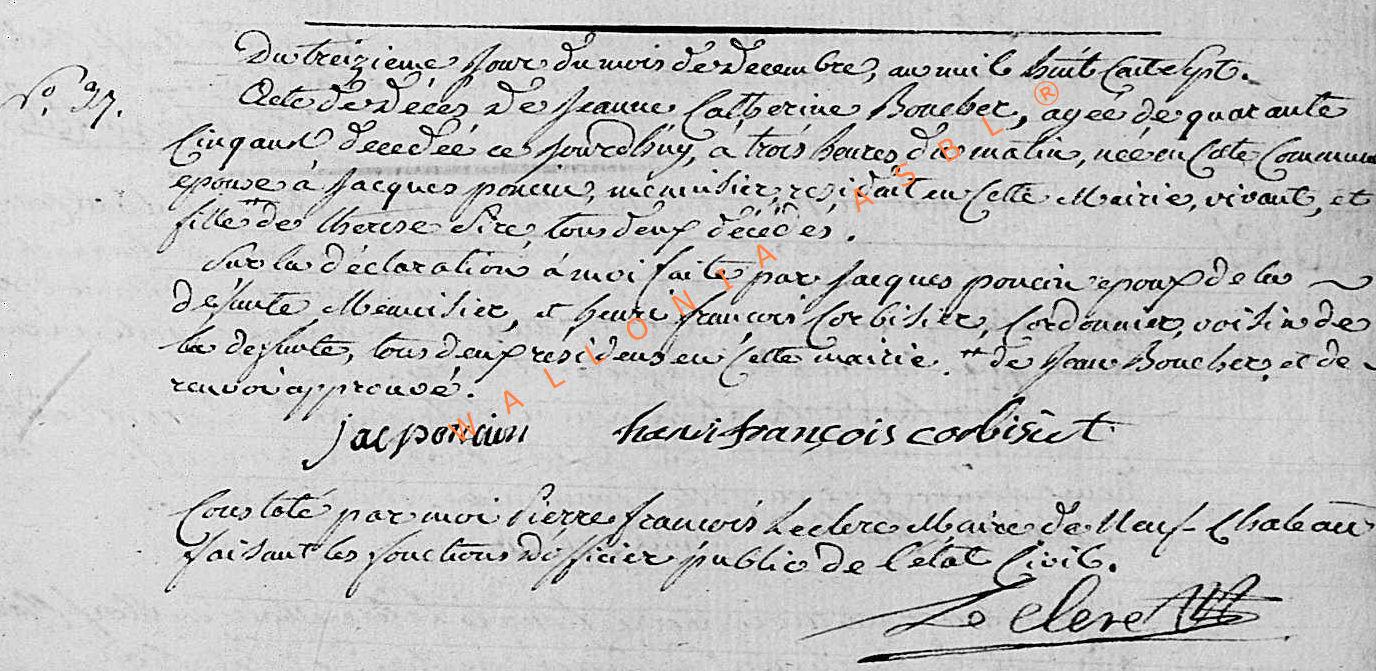 Du treizieme jour du mois de Decembre, an mil huit Cent Sept.
No. 37.
Acte de Décès de Jeanne Catherine Boucher, agée de quarante
Cinq ans décedée ce jourdhuy, à trois heures du matin, née en Cete Commune
epouse à Jacques poncin, menuisier, residant en Cette Mairie, vivant, et
fille ++ de therese Pire, tous deux décédés.
Sur la déclaration à moi faite par Jacques poncin epoux de la
défunte Menuisier, et henri françois Corbisier, Cordonnier, voisin de
la defunte, tous deux residens en Cette mairie. ++ de Jean Boucher, et de
renvoi approuvé.
jac poncinn henri françois corbisiet
Constaté par moi Pierre françois Leclerc Maire de Neuf-Chateau
faisant les fonctions d'officier public de l'état Civil.
Le clerc
WALLONIA ASBL ®